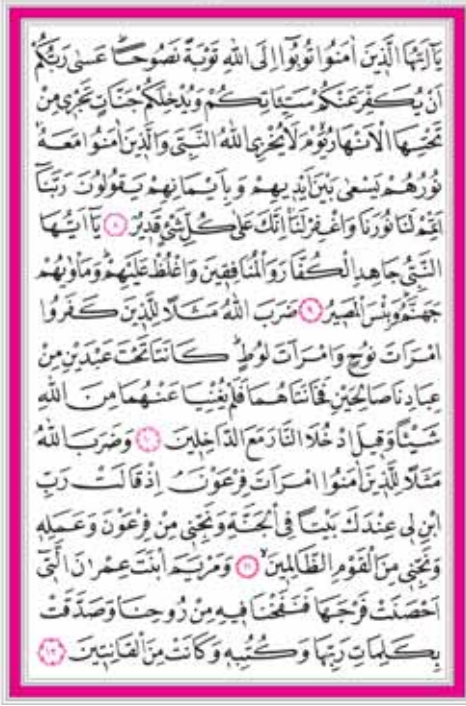 يَٓا اَيُّهَا الَّذ۪ينَ اٰمَنُوا تُوبُٓوا اِلَى اللّٰهِ تَوْبَةً نَصُوحًاۜ عَسٰى رَبُّكُمْ
اَنْ يُكَفِّرَ عَنْكُمْ سَيِّـَٔاتِكُمْ وَيُدْخِلَكُمْ جَنَّاتٍ تَجْر۪ي مِنْ
تَحْتِهَا الْاَنْهَارُۙ يَوْمَ لَا يُخْزِي اللّٰهُ النَّبِيَّ وَالَّذ۪ينَ اٰمَنُوا مَعَهُۚ
نُورُهُمْ يَسْعٰى بَيْنَ اَيْد۪يهِمْ وَبِاَيْمَانِهِمْ يَقُولُونَ رَبَّنَٓا
اَتْمِمْ لَنَا نُورَنَا وَاغْفِرْ لَنَاۚ اِنَّكَ عَلٰى كُلِّ شَيْءٍ قَد۪يرٌ ﴿٨﴾ يَٓا اَيُّهَا
النَّبِيُّ جَاهِدِ الْكُفَّارَ وَالْمُنَافِق۪ينَ وَاغْلُظْ عَلَيْهِمْۜ وَمَأْوٰيهُمْ
جَهَنَّمُۜ وَبِئْسَ الْمَص۪يرُ ﴿٩﴾ ضَرَبَ اللّٰهُ مَثَلًا لِلَّذ۪ينَ كَفَرُوا
امْرَاَتَ نُوحٍ وَامْرَاَتَ لُوطٍۜ كَانَتَا تَحْتَ عَبْدَيْنِ مِنْ
عِبَادِنَا صَالِحَيْنِ فَخَانَتَاهُمَا فَلَمْ يُغْنِيَا عَنْهُمَا مِنَ اللّٰهِ
شَيْـًٔا وَق۪يلَ ادْخُلَا النَّارَ مَعَ الدَّاخِل۪ينَ ﴿١٠﴾ وَضَرَبَ اللّٰهُ
مَثَلًا لِلَّذ۪ينَ اٰمَنُوا امْرَاَتَ فِرْعَوْنَۢ اِذْ قَالَتْ رَبِّ
ابْنِ ل۪ي عِنْدَكَ بَيْتًا فِي الْجَنَّةِ وَنَجِّن۪ي مِنْ فِرْعَوْنَ وَعَمَلِه۪
وَنَجِّن۪ي مِنَ الْقَوْمِ الظَّالِم۪ينَۙ ﴿١١﴾ وَمَرْيَمَ ابْنَتَ عِمْرٰنَ الَّت۪ٓي
اَحْصَنَتْ فَرْجَهَا فَنَفَخْنَا ف۪يهِ مِنْ رُوحِنَا وَصَدَّقَتْ
بِكَلِمَاتِ رَبِّهَا وَكُتُبِه۪ وَكَانَتْ مِنَ الْقَانِت۪ينَ ﴿١٢﴾